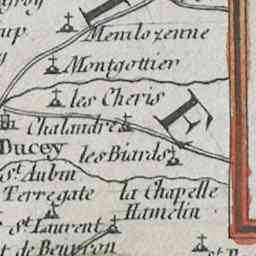 up
Menilozenne
Montgottier
les Cheris
E
Chalandre
Ducey
les Biards
St. Aubin
Terregate
la Chapelle
Hamelin
St Laurent
t de Beuvron